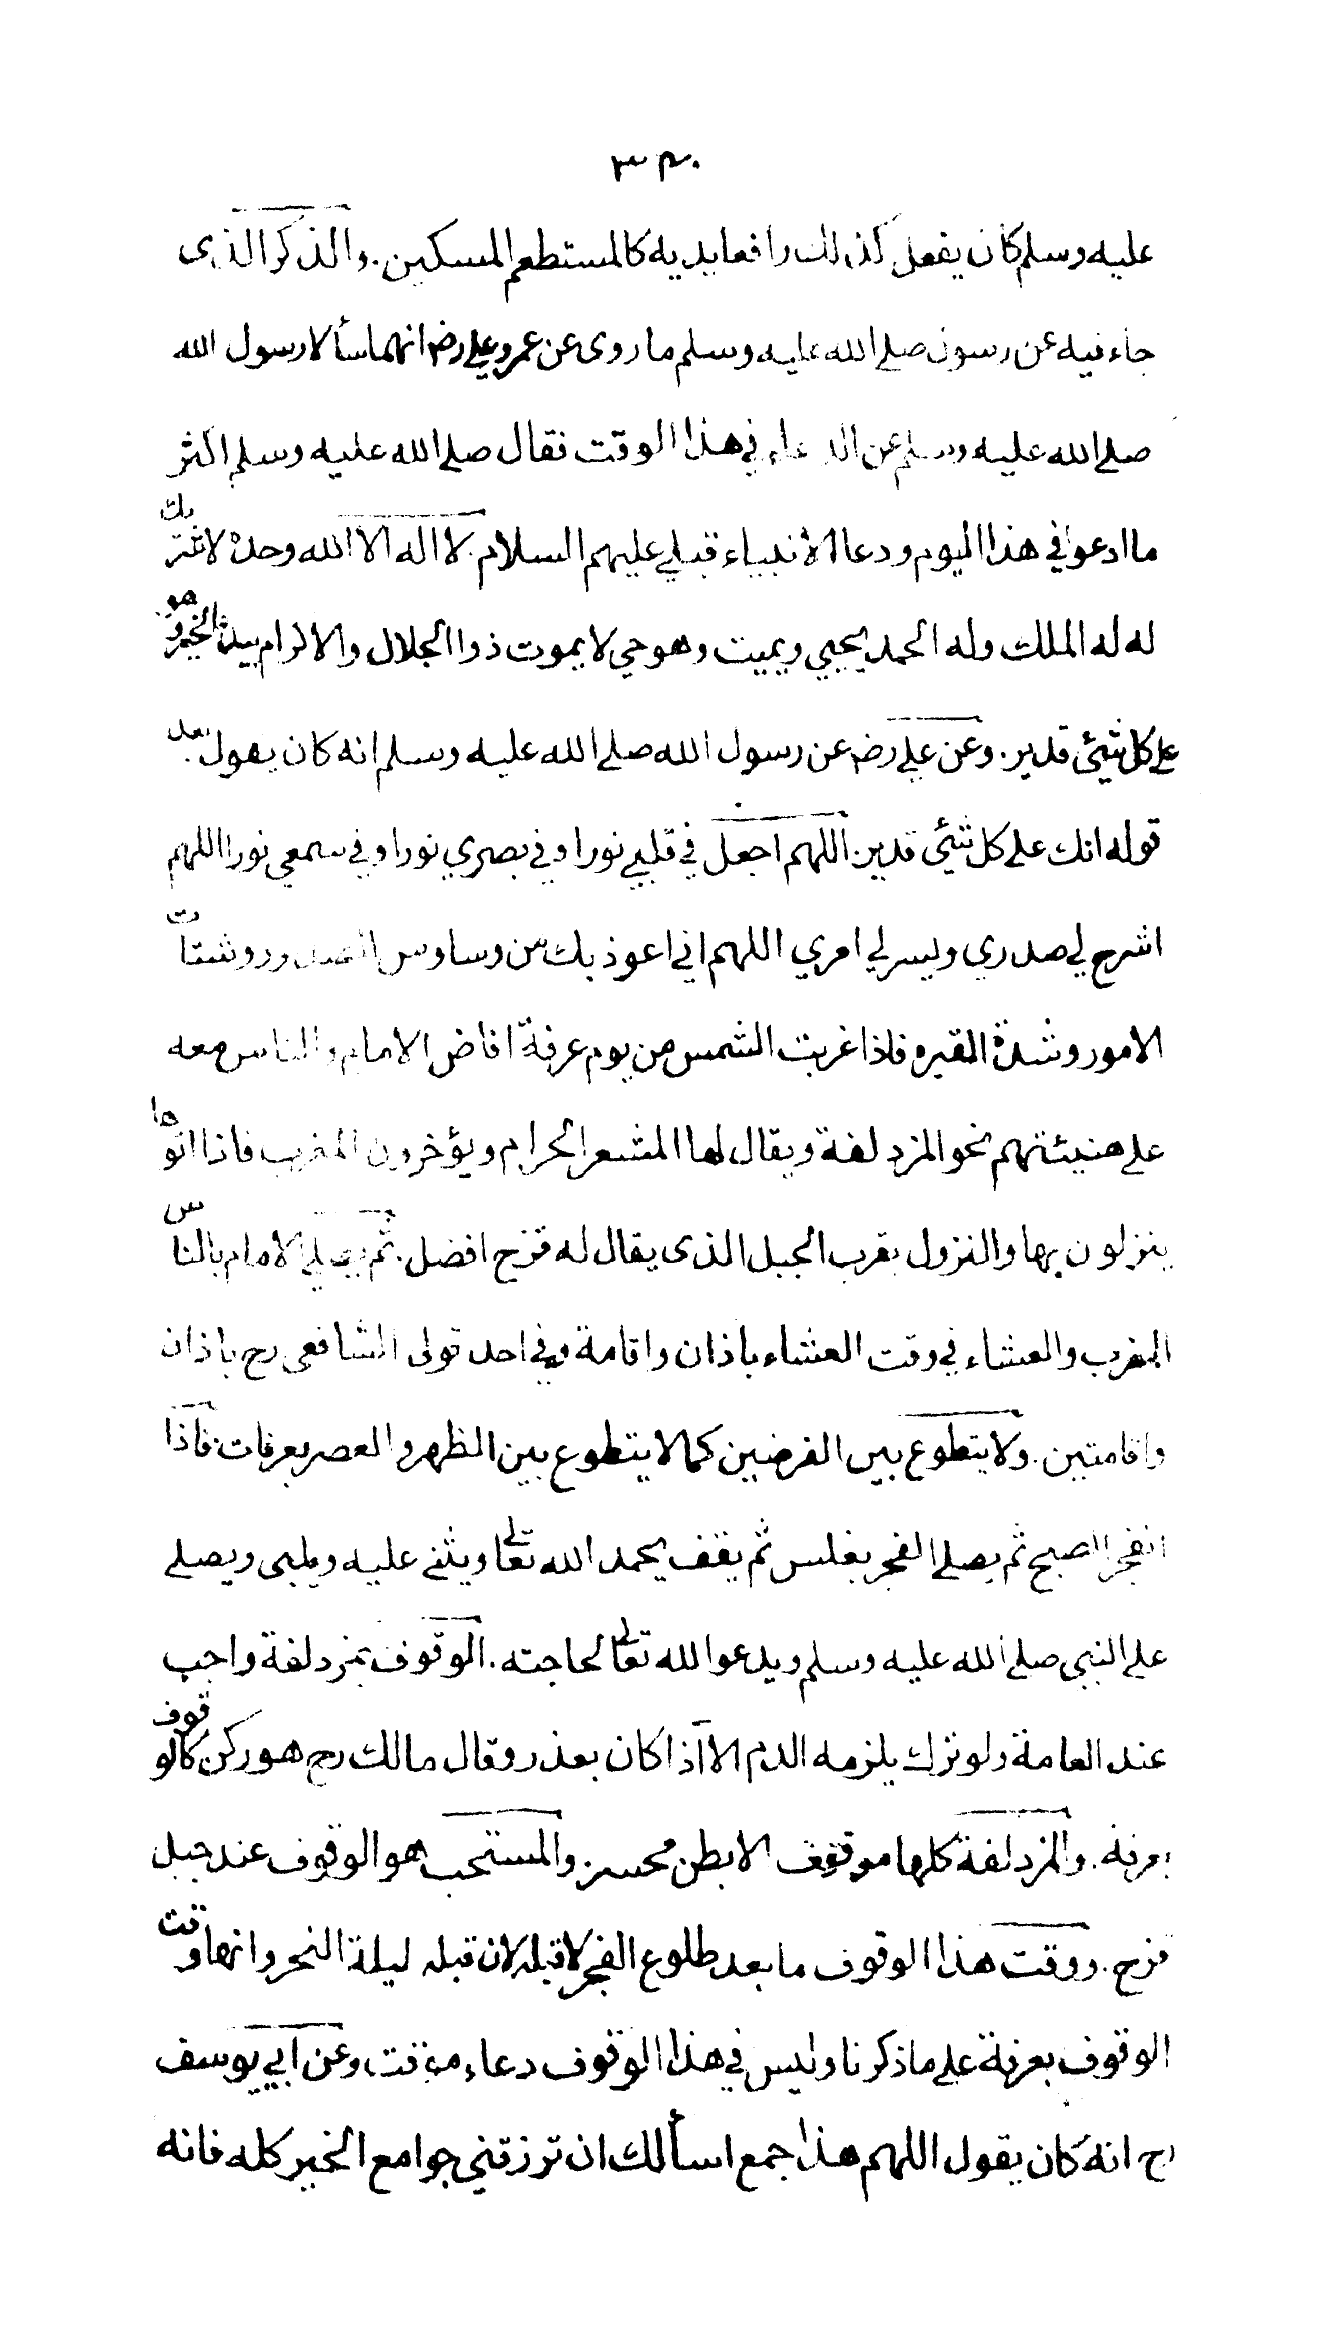 ٣٠٠
عليه وسلم كان يفعل كذلك رافعا يديه كالمستطعم المسكين. والذكر الذى
جاء فيه عن رسول صلى الله عليه وسلم ما روى عن عمر وعلي رضـ انهما سألا رسول الله
صلى الله عليه وسلم عن الدعاء في هذا الوقت فقال صلى الله عليه وسلم اكثر
ما ادعوا في هذا اليوم ودعا الانبياء قبلي عليهم السلام. لا اله الا الله وحده لا شريك
له له الملك وله الحمد يحيي ويميت وهو حي لا يموت ذوا الجلال والاكرام بيده الخير وهو
على كل شيئ قدير. وعن علي رضـ عن رسول الله صلى الله عليه وسلم انه كان يقول بعد
قوله انك على كل شيئ قدير. اللهم اجعل في قلبي نورا وفي بصري نورا وفي سمعي نورا اللهم
اشرح لي صدري ويسر لي امري اللهم اني اعوذ بك من وساوس الصدور وشتات
الامور وشدة القبر ه فاذا غربت الشمس من يوم عرفة افاض الامام والناس معه
على هنيئتهم نحو المزدلفة ويقال لها المشعر الحرام ويؤخرون المغرب فاذا اتوها
ينزلون بها والنزول بقرب الجبل الذى يقال له قزح افضل. ثم يصلي الامام بالناس
المغرب والعشاء في وقت العشاء باذان واقامة وفي احد قولى الشافعى رح باذان
واقامتين. ولا يتطوع بين الفرضين كما لا يتطوع بين الظهر والعصر بعرفات. فاذا
انفجر الصبح ثم يصلى الفجر بغلس ثم يقف يحمد الله تعالى ويثنى عليه ويلبى ويصلى
على النبى صلى الله عليه وسلم ويدعوا لله تعالى لحاجته. الوقوف بمزدلفة واجب
عند العامة ولو ترك يلزمه الدم الا اذا كان بعذر وقال مالك رح هو ركن كالوقوف
بعرفة. والمزدلفة كلها موقف الا بطن محسر. والمستحب هو الوقوف عند جبل
قزح. ووقت هذا الوقوف ما بعد طلوع الفجر لا قبله لان قبله ليلة النحر وانها وقت
الوقوف بعرفة على ما ذكرنا وليس في هذا الوقوف دعاء موقت وعن ابي يوسف
رح انه كان يقول اللهم هذا جمع اسألك ان ترزقني جوامع الخير كله فانه